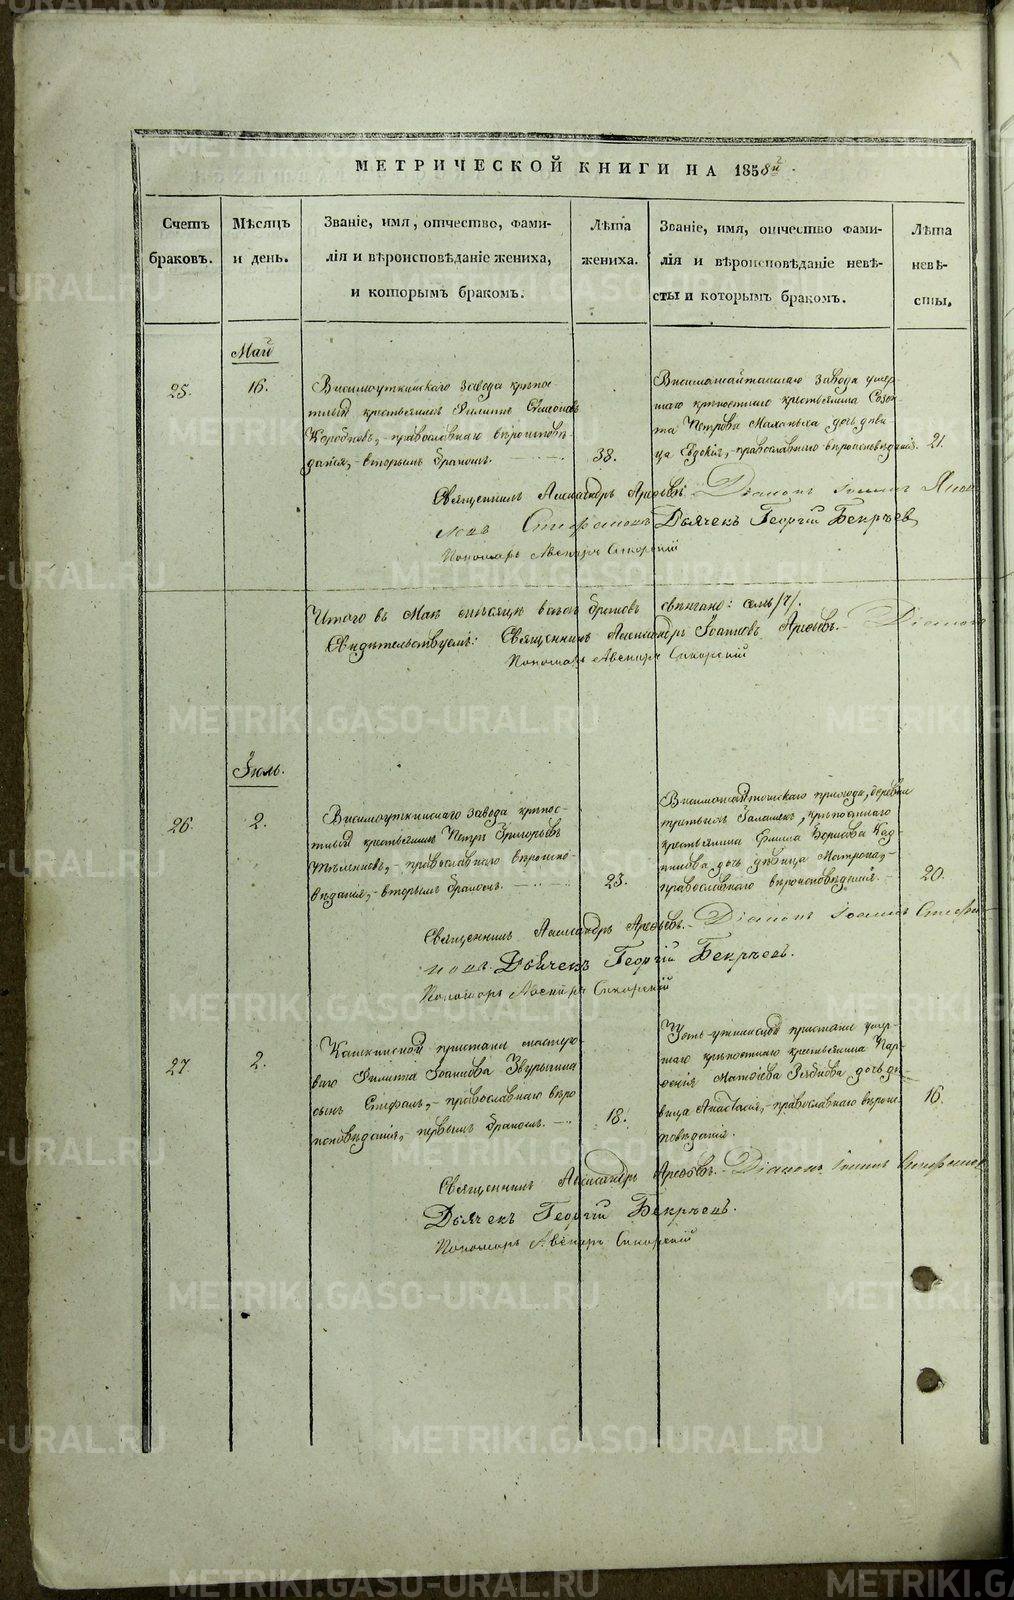 МЕТРИЧЕСКОЙ КНИГИ НА 1858й.
Счетъ браковъ.
Мѣсяцъ и день.
Званіе, имя, отчество, фами-
лія и вѣроисповѣданіе жениха,
и которымъ бракомъ.
Лѣта
жениха.
Званіе, имя, отчество фами-
лія и вѣроисповѣданіе невѣ-
сты и которымъ бракомъ.
Лѣта
невѣ-
сты.
Май
25.
16.
Висимоуткинскаго завода крѣпос
тный крестьянинъ Филиппъ Симеоновъ
Коробковъ, православнаго вѣроисповѣ
данія, вторымъ бракомъ.
38.
завода умер-
шаго крѣпостнаго крестьянина Созон
та Петрова дочь дѣви
ца Евдокія, православнаго вѣроисповѣданія.
21.
Священникъ Александръ Арефьевъ. Діаконъ Іоаннъ
Стефановъ Дьячекъ Георгій Бекрѣевъ
Пономарь Авениръ Сикорскій
Итого въ Маѣ мѣсяцѣ всѣхъ браковъ свѣнчано: семь /7/.
Свидѣтельствуемъ: Священникъ Александръ Іоанновъ Арефьевъ. Діаконъ
Пономарь Авениръ Сикорскій
Іюль.
26.
2.
Висимоуткинскаго завода крѣпос-
тный крестьянинъ Петръ Григорьевъ
православнаго вѣроиспо-
вѣданія, вторымъ бракомъ.
23.
деревни
Галашекъ, крѣпостнаго
крестьянина Борисова
дочь дѣвица Матрона,
православнаго вѣроисповѣданія.
20.
Священникъ Александръ Арефьевъ. Діаконъ Іоаннъ
Дьячекъ Георгій Бекрѣевъ.
Пономарь Авениръ Сикорскій
27
2.
Кашкинской пристани мастеро
ваго Филиппа Іоаннова Звурыгина
сынъ Стефанъ, православнаго вѣро
исповѣданія, первымъ бракомъ.
18.
Усть-уткинской пристани умер-
шаго крѣпостнаго крестьянина Пар
фенія Матвѣева Рябкова дочь дѣ-
вица Анастасія, православнаго вѣроис
повѣданія.
16.
Священникъ Александръ Арефьевъ. Діаконъ Іоаннъ
Дьячекъ Георгій Бекрѣевъ.
Пономарь Авениръ Сикорскій
METRIKI.GASO-URAL.RU